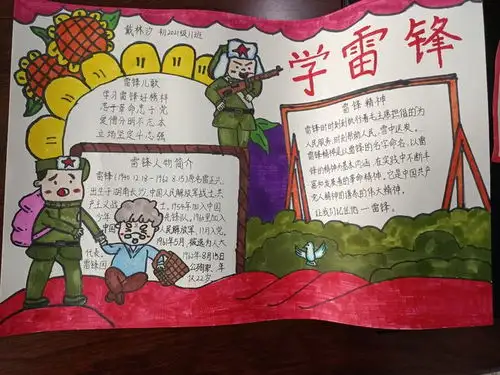 戴林汐 初2021级11班
学雷锋
雷锋儿歌
学习雷锋好榜样
忠于革命忠于党
爱憎分明不忘本
立场坚定斗志强
雷锋人物简介
雷锋(1940.12.18-1962.8.15)原名雷正兴
出生于湖南长沙,中国人民解放军战士,共
产主义战士,1954年加入中国
少年先锋队,1960年加入
中国人民解放军,11月入党。
1961年5月,被选为人大
代表。1962年8月15日
雷锋因公殉职,年
仅22岁
雷锋精神
雷锋时时刻刻执行着毛主席提倡的为
人民服务,时刻帮助人民,雪中送炭。
雷锋精神是以雷锋的名字命名,以雷
锋的精神为基本内涵,在实践中不断丰
富和发展着的革命精神,它是中国共产
党人精神的谱系的伟大精神。
让我们记住他一雷锋。